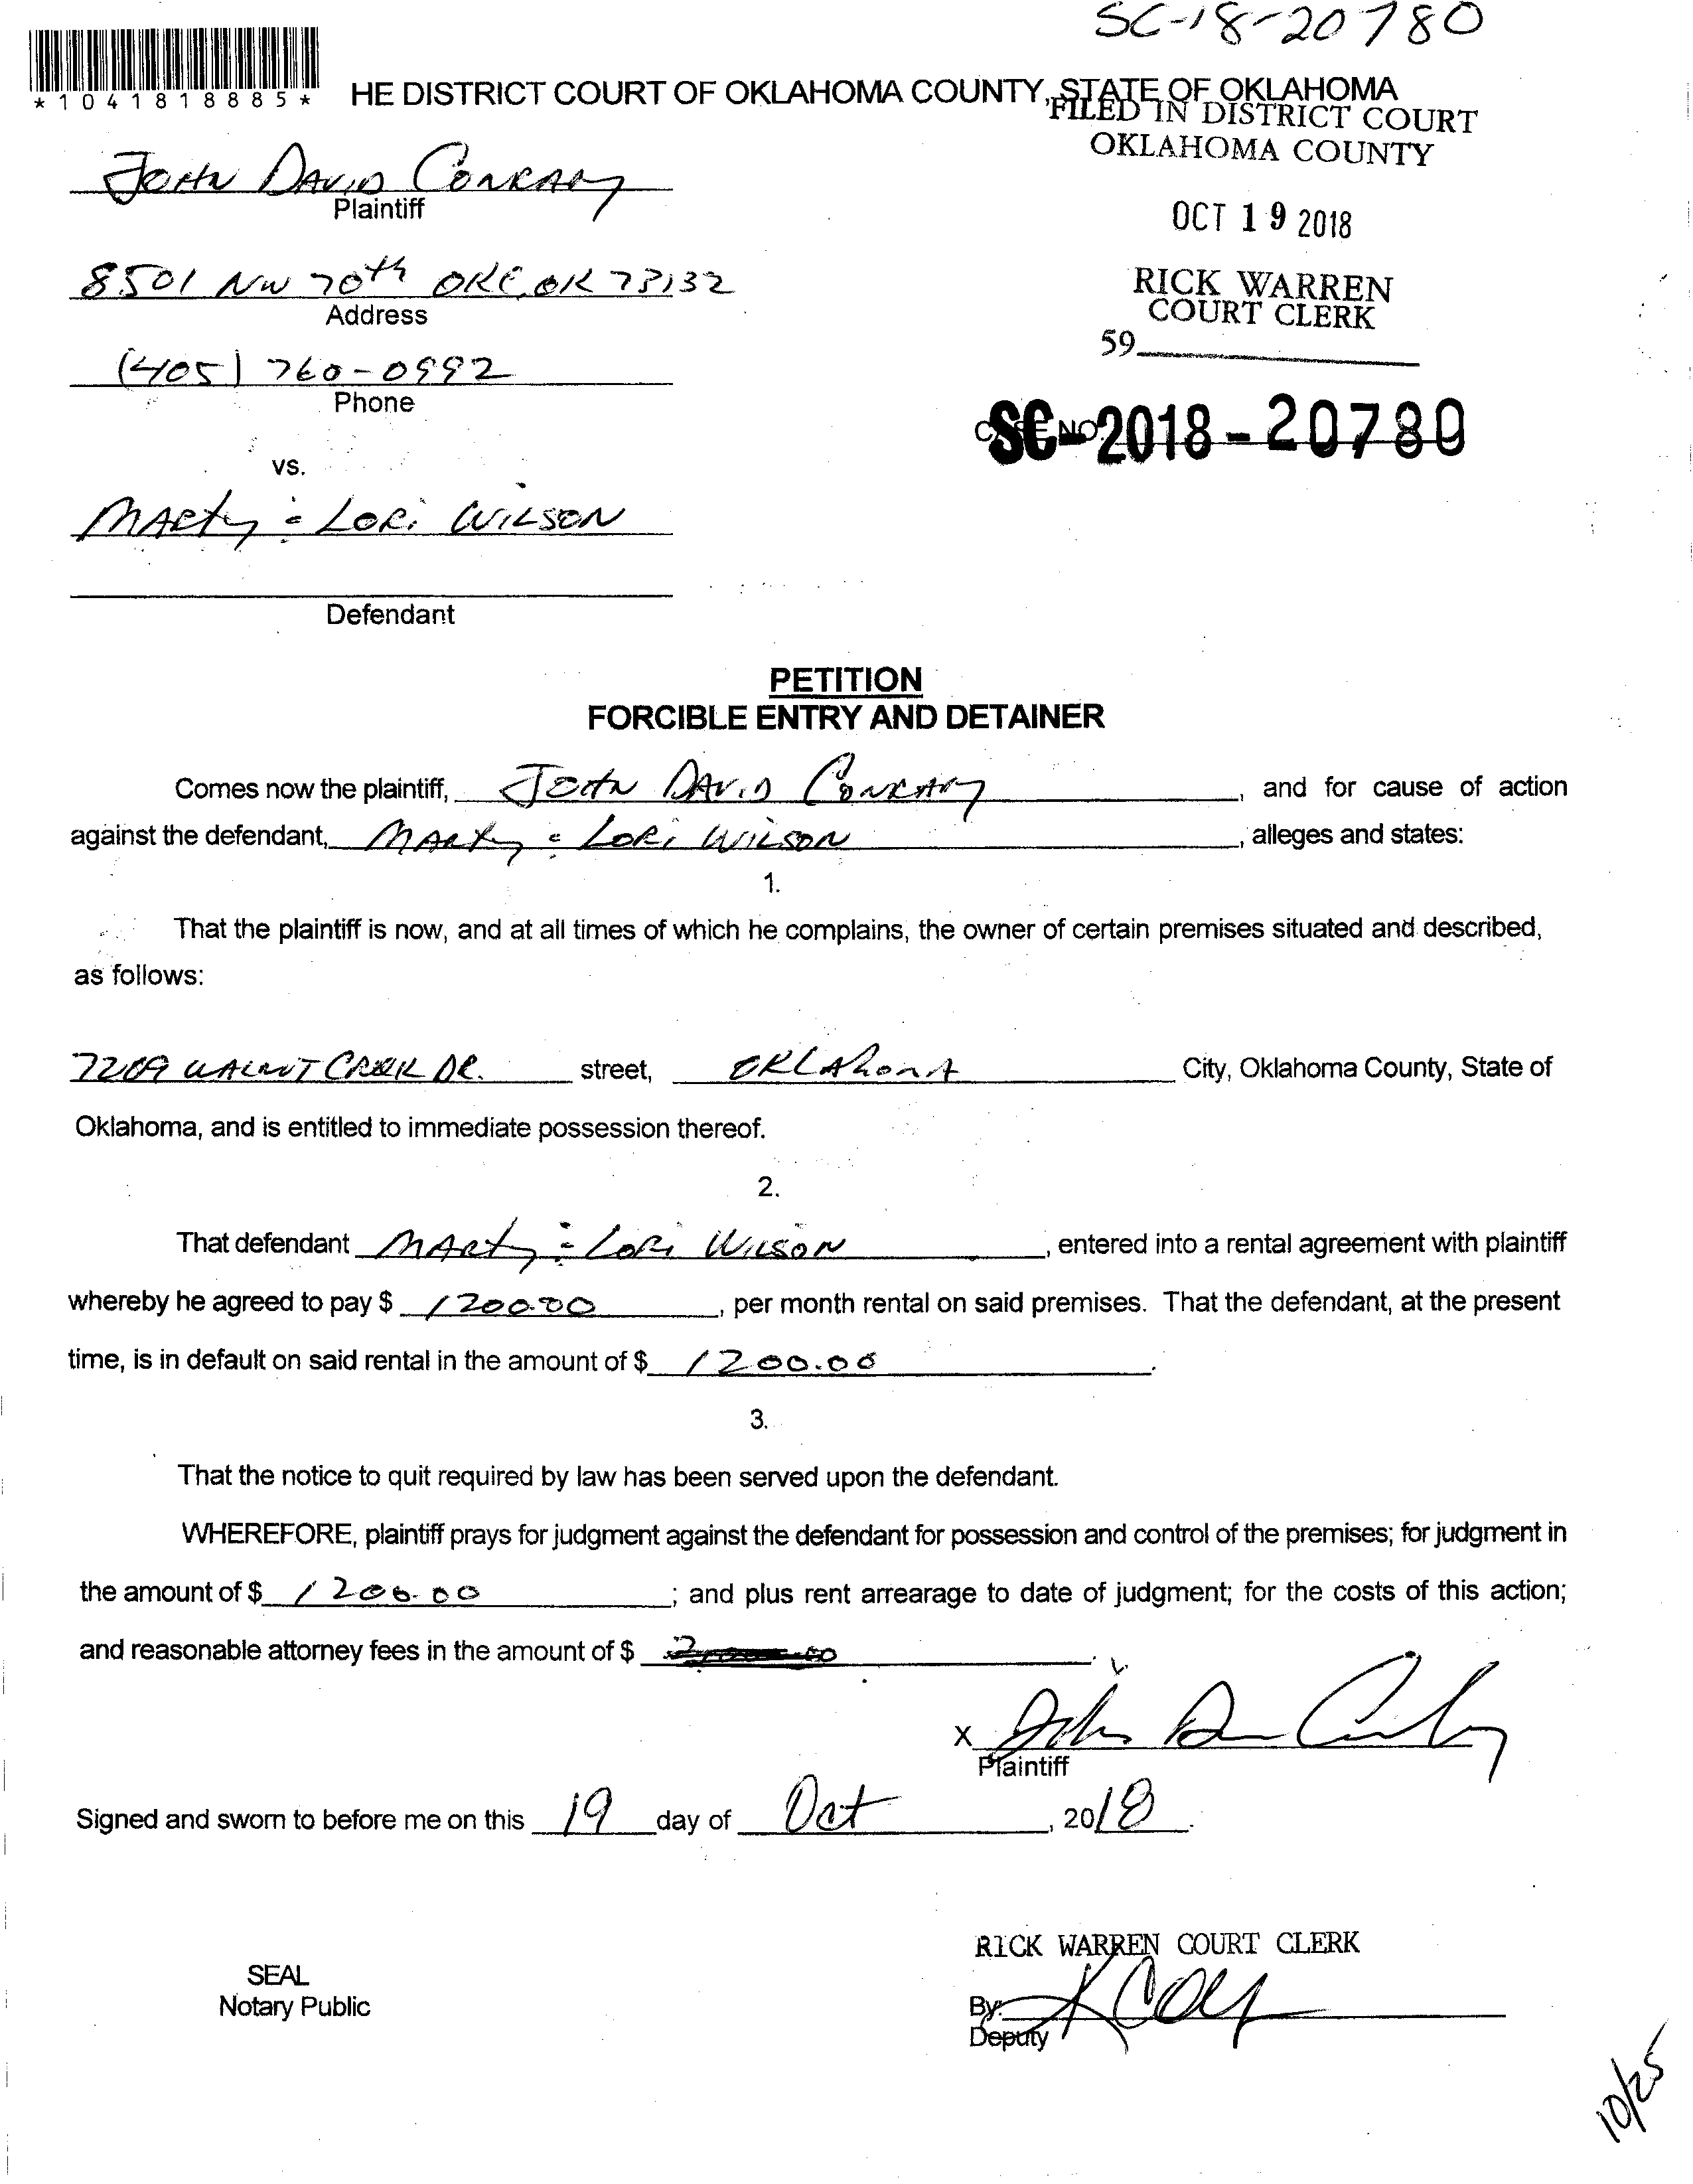 SC-18-20780
*1041818885*
HE DISTRICT COURT OF OKLAHOMA COUNTY, STATE OF OKLAHOMA
FILED IN DISTRICT COURT
OKLAHOMA COUNTY
John David Conrady
Plaintiff
OCT 19 2018
8501 NW 70th OKC, OK 73132
Address
RICK WARREN
COURT CLERK
59
(405) 760-0992
Phone
SC-2018-20780
vs.
Marty & Lori Wilson
Defendant
PETITION
FORCIBLE ENTRY AND DETAINER
Comes now the plaintiff, John David Conrady, and for cause of action
against the defendant, Marty & Lori Wilson, alleges and states:
1.
That the plaintiff is now, and at all times of which he complains, the owner of certain premises situated and described,
as follows:
7209 Walnut Creek Dr. street, Oklahoma City, Oklahoma County, State of
Oklahoma, and is entitled to immediate possession thereof.
2.
That defendant Marty & Lori Wilson, entered into a rental agreement with plaintiff
whereby he agreed to pay $ 1200.00, per month rental on said premises. That the defendant, at the present
time, is in default on said rental in the amount of $ 1200.00.
3.
That the notice to quit required by law has been served upon the defendant.
WHEREFORE, plaintiff prays for judgment against the defendant for possession and control of the premises; for judgment in
the amount of $ 1200.00; and plus rent arrearage to date of judgment; for the costs of this action;
and reasonable attorney fees in the amount of $
X
Plaintiff
Signed and sworn to before me on this 19 day of Oct, 2018.
RICK WARREN COURT CLERK
SEAL
Notary Public
By:
Deputy
10/25